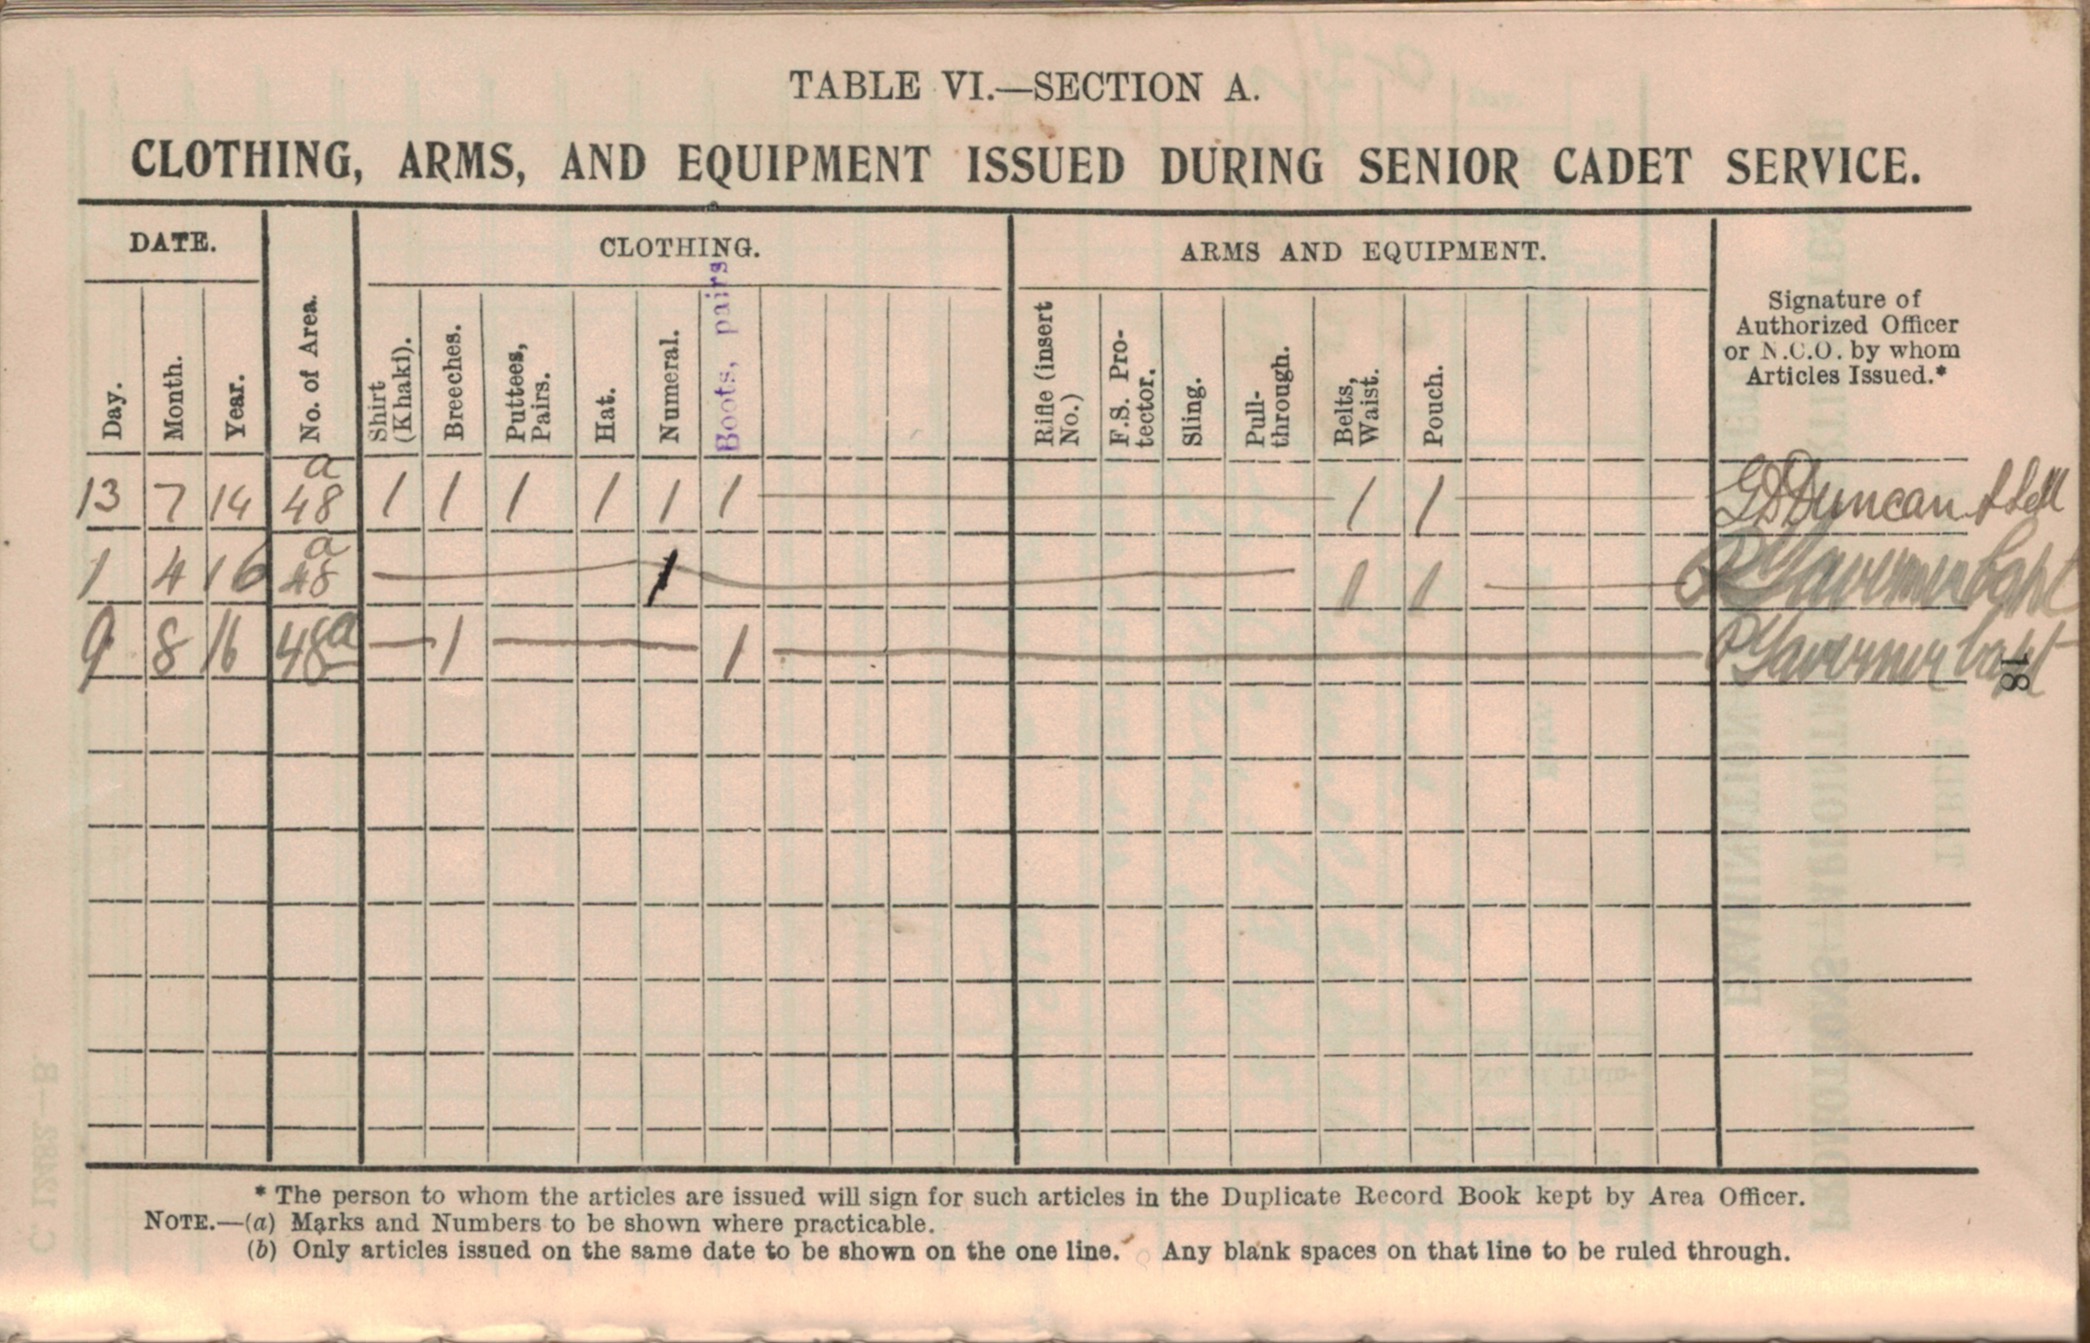 TABLE VI.—SECTION A.
CLOTHING, ARMS, AND EQUIPMENT ISSUED DURING SENIOR CADET SERVICE.
DATE. No. of Area. CLOTHING. ARMS AND EQUIPMENT. Signature of Authorized Officer or N.C.O. by whom Articles Issued.*
Day. Month. Year. Shirt (Khaki). Breeches. Puttees, Pairs. Hat. Numeral. Boots, pairs Rifle (insert No.) F.S. Protector. Sling. Pull-through. Belts, Waist. Pouch.
13 7 14 48a 1 1 1 1 1 1 1 1 G D Duncan
1 4 16 48a 1 1 1
9 8 16 48a 1 1
18
* The person to whom the articles are issued will sign for such articles in the Duplicate Record Book kept by Area Officer.
NOTE.—(a) Marks and Numbers to be shown where practicable.
(b) Only articles issued on the same date to be shown on the one line. Any blank spaces on that line to be ruled through.
C. 12482.—B.